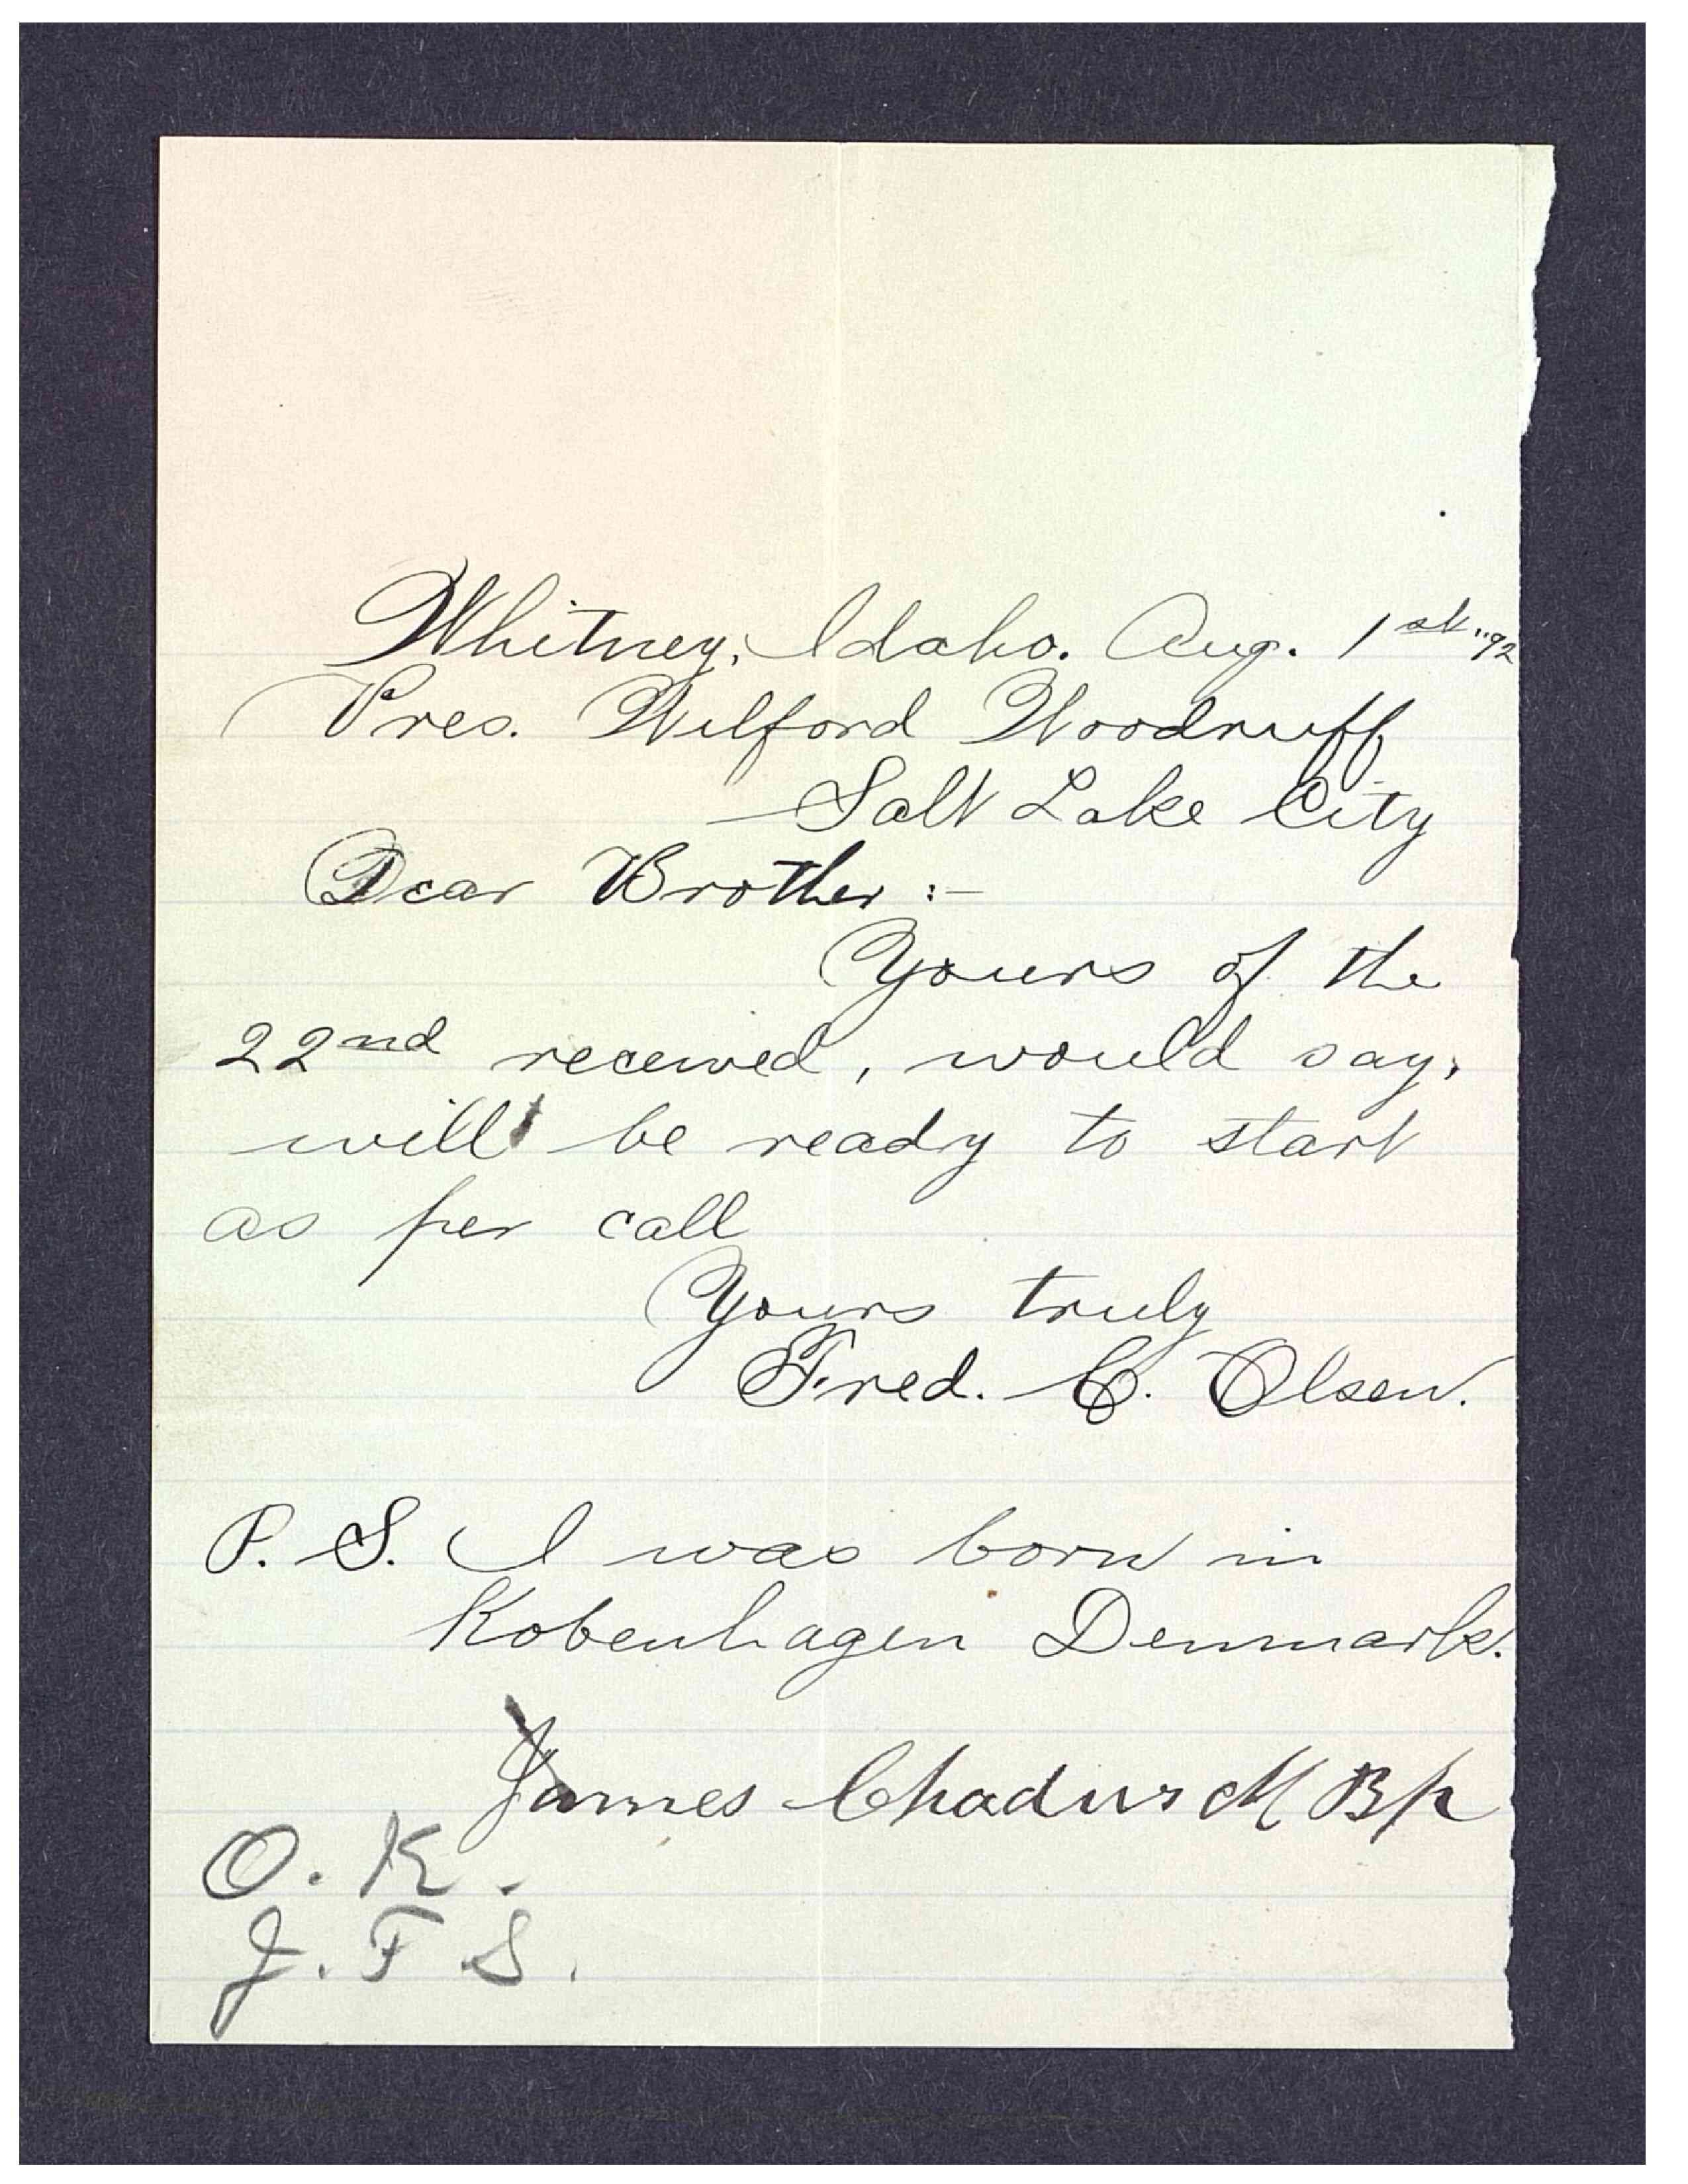 Whitney, Idaho. Aug. 1st "92
Pres. Wilford Woodruff
Salt Lake City
Dear Brother :-
Yours of the
22nd received, would say,
will be ready to start
as per call
Yours truly
Fred. C. Olsen.
P. S. I was born in
Kobenhagen Denmark.
James Chadwick Bp
O. K.
J. F. S.